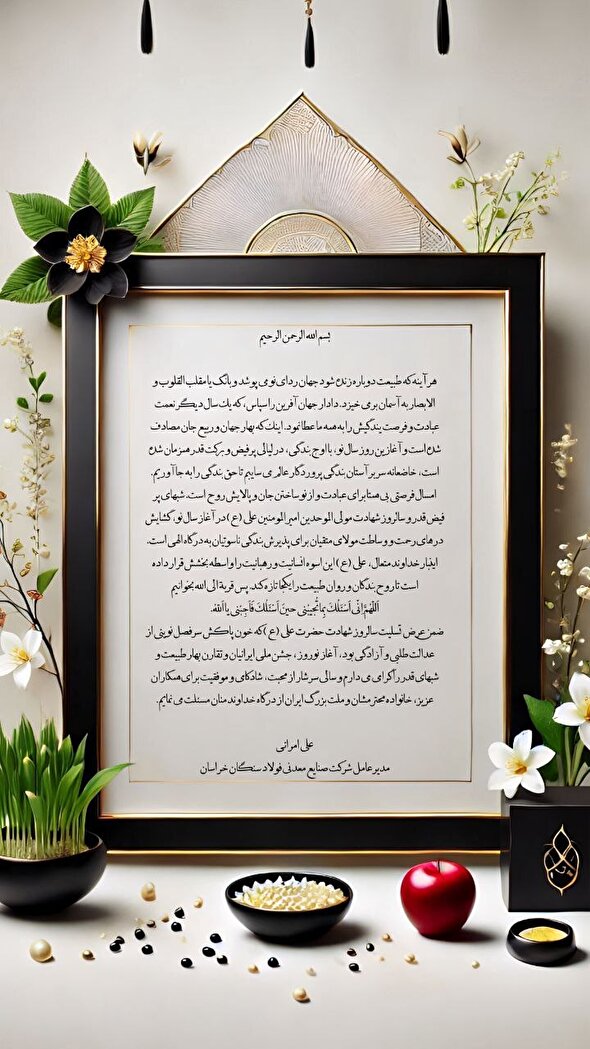 بسم الله الرحمن الرحیم
هر آینه که طبیعت دوباره زنده شود جهان ردای نو می پوشد و بانگ یا مقلب القلوب و
الابصار به آسمان برمی خیزد. دادار جهان آفرین را سپاس، که یك سال دیگر نعمت
عبادت و فرصت بندگیش را به همه ما عطا نمود. اینك که بهار جهان و ربیع جان مصادف
شده است و آغازین روز سال نو، با اوج بندگی، در لیالی پرفیض و برکت قدر همزمان شده
است، خاضعانه سر بر آستان بندگی پروردگار عالم می ساییم تا حق بندگی را به جا آوریم.
امسال فرصتی بی همتا برای عبادت و از نو ساختن جان و پالایش روح است. شبهای پر
فیض قدر و سالروز شهادت مولی الموحدین امیرالمومنین علی (ع) در آغاز سال نو، گشایش
درهای رحمت و وساطت مولای متقیان برای پذیرش بندگی ناسوتیان به درگاه الهی است.
اینبار خداوند متعال، علی (ع) این اسوه انسانیت و رهبانیت را واسطه بخشش قرار داده
است تا روح بندگان و روان طبیعت را یکجا تازه کند. پس قربة الی الله بخوانیم
اَللّهُمَّ اِنّی اَسئَلُكَ بِما تُجیبُنی حینَ اَسئَلُكَ فَاَجِبنی یا اَللهُ.
ضمن عرض تسلیت سالروز شهادت حضرت علی (ع) که خون پاکش سرفصل نوینی از
عدالت طلبی و آزادگی بود، آغاز نوروز، جشن ملی ایرانیان و تقارن بهار طبیعت و
شبهای قدر را گرامی می دارم و سالی سرشار از محبت، شادکامی و موفقیت برای همکاران
عزیز، خانواده محترمشان و ملت بزرگ ایران از درگاه خداوند منان مسئلت می نمایم.
علی امرانی
مدیرعامل شرکت صنایع معدنی فولاد سنگان خراسان